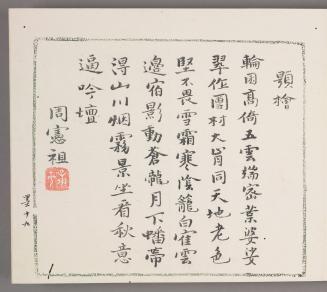 顯檜
輪囷高倚五雲端密葉婆娑
翠作團材大肯同天地老色
堅不畏雪霜寒陰籠白隺雲
邊宿影動蒼龍月下蟠喜
得山川烟霧景坐看秋意
逼吟壇
周憲祖